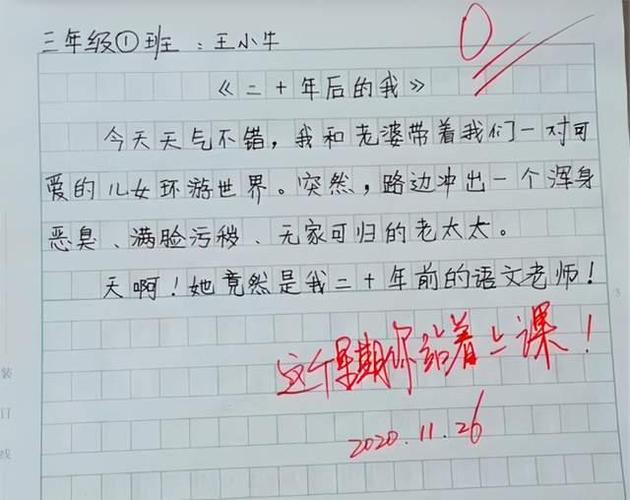 三年级①班：王小牛
0
《二十年后的我》
今天天气不错，我和老婆带着我们一对可
爱的儿女环游世界。突然，路边冲出一个浑身
恶臭、满脸污秽、无家可归的老太太。
天啊！她竟然是我二十年前的语文老师！
这个星期你站着上课！
2020.11.26
装
订
线